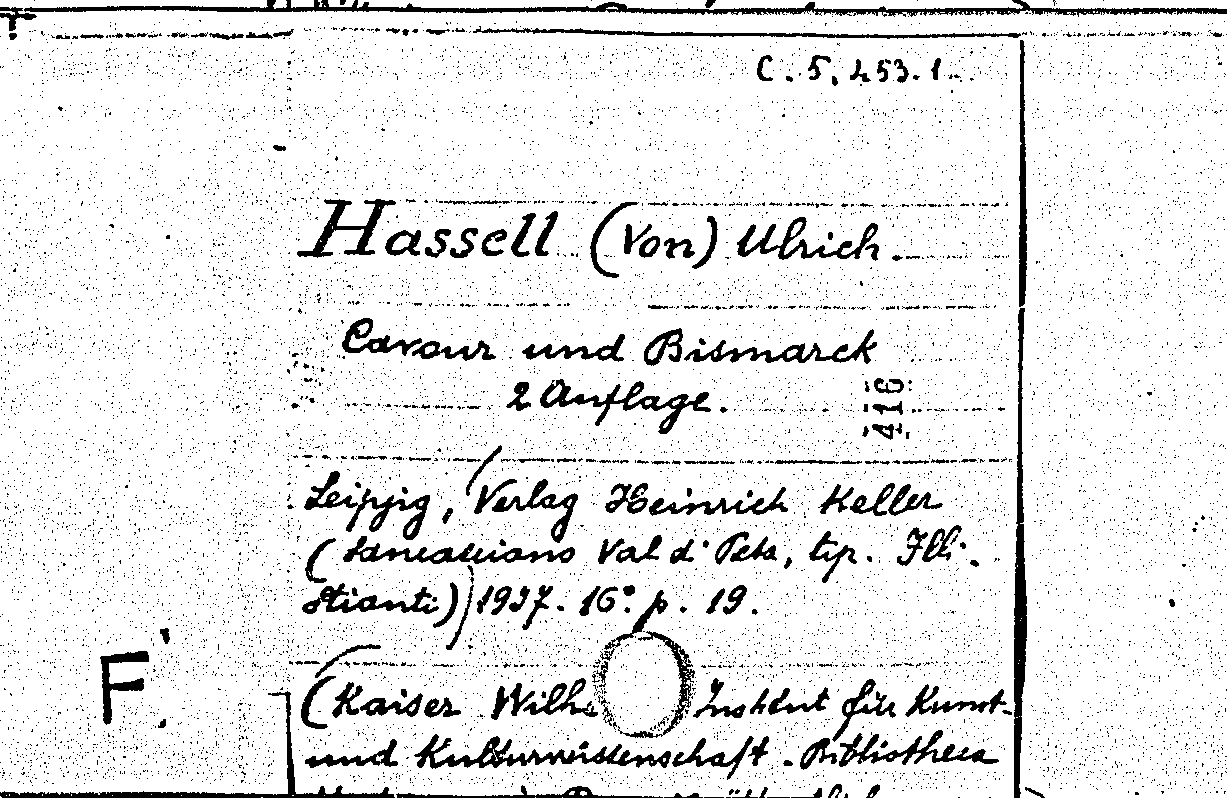 C. 5, 453.1.
Hassell (Von) Ulrich.
Cavour und Bismarck
2 Auflage.
416
Leipzig, (Verlag Heinrich Keller
(Sancasciano Val di Pesa, tip. Flli.
Stianti)) 1937. 16° p. 19.
(Kaiser Wilh Institut für Kunst-
F.
und Kulturwissenschaft. Bibliotheca